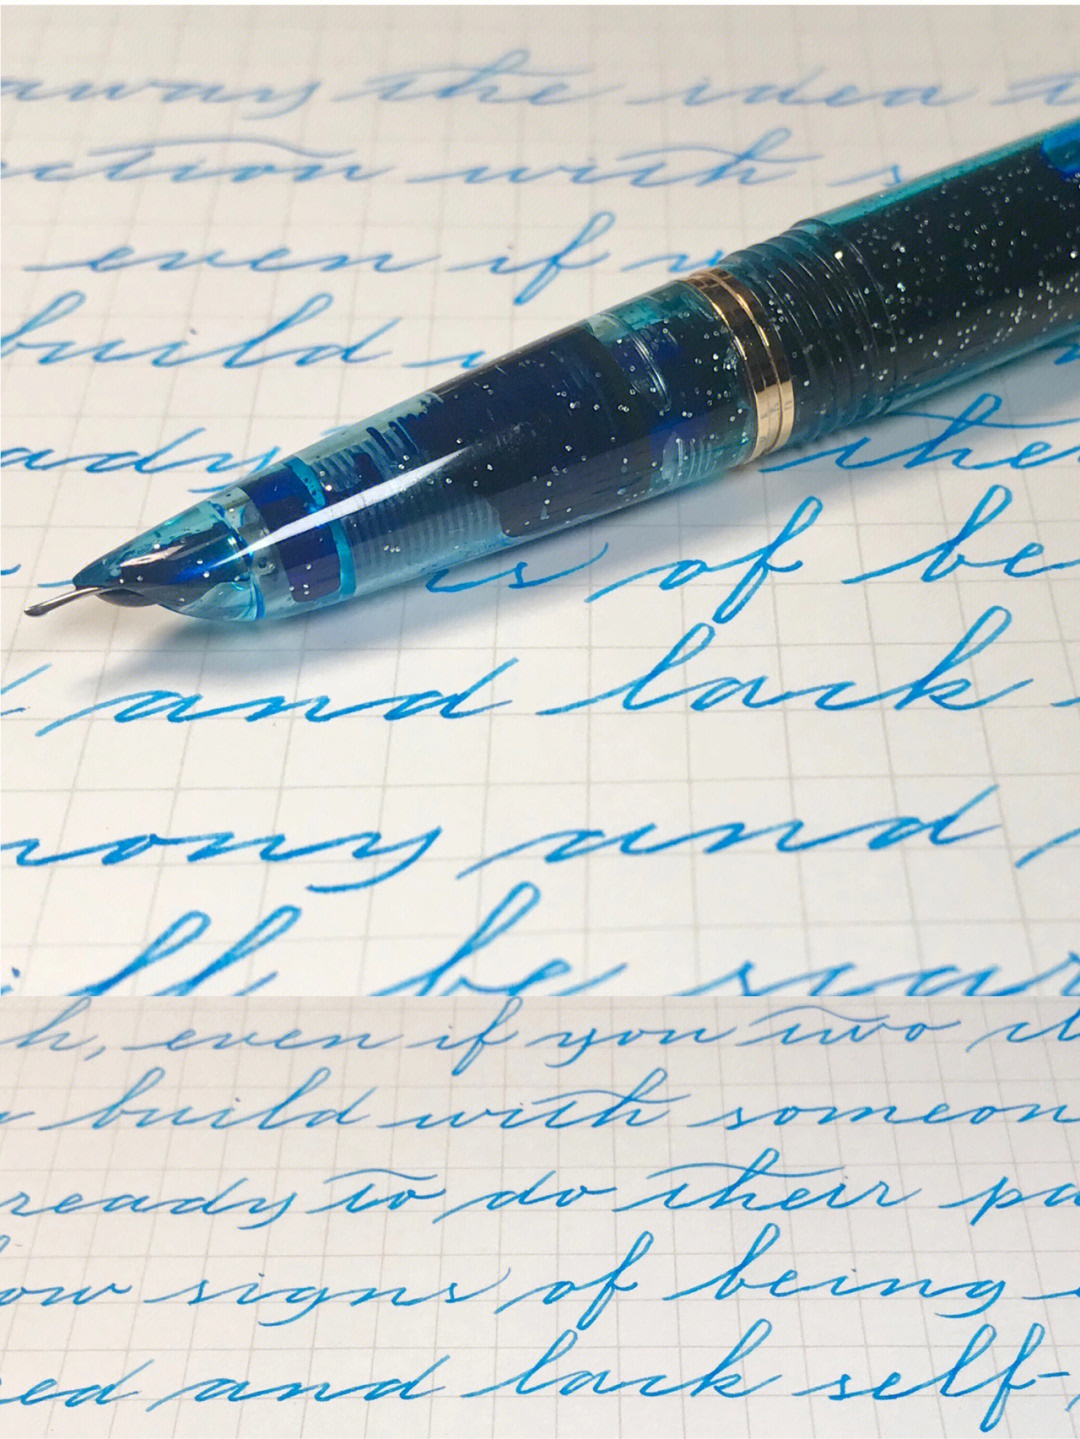 away the idea
with
even if
build
ready their
is of be
and lack
mony and
be
h, even if you two
build with someon
ready to do their pa
ow signs of being
ed and lack self-